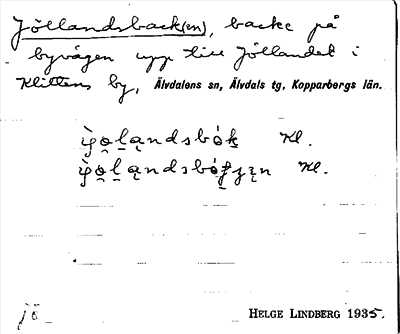 Jöllandsback(en), backe på
byvägen upp till Jöllandet i
Klittens by, Älvdalens sn, Älvdals tg, Kopparbergs län.
Kl.
Kl.
jö
HELGE LINDBERG 1935.